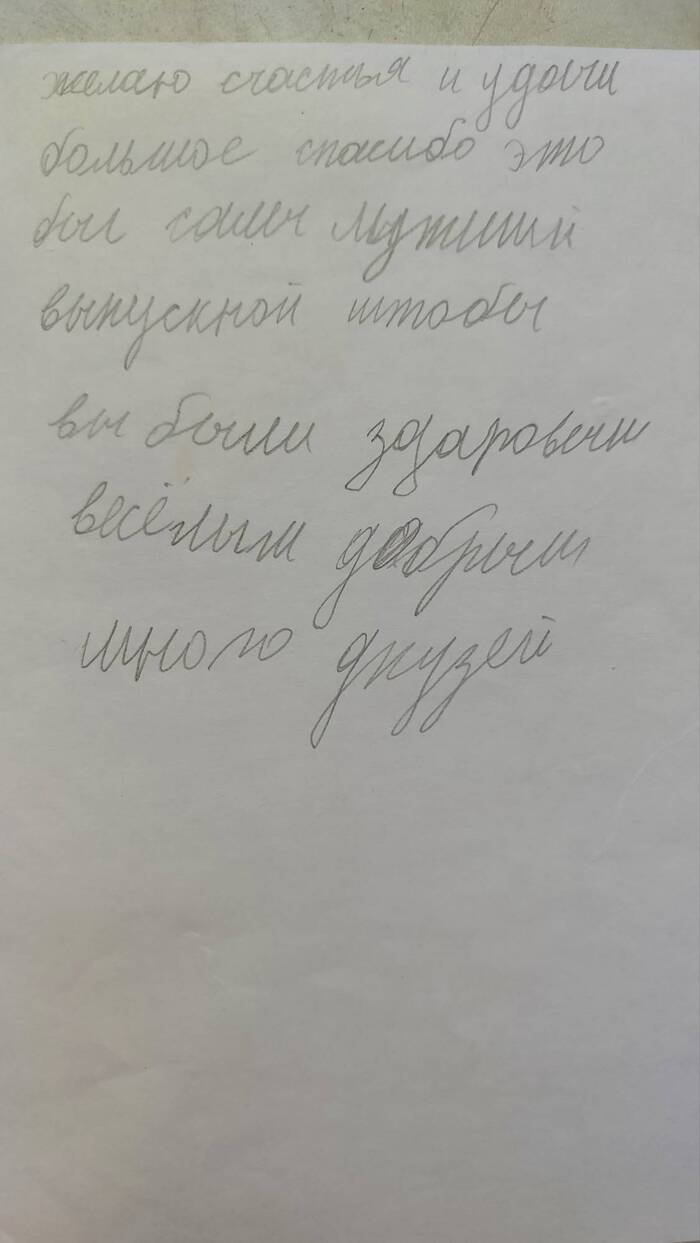 желаю счастья и удачи
большое спасибо это
был самы лужший
выпускной штобы
вы были здаровыи
весёлыи добрыи
много друзей